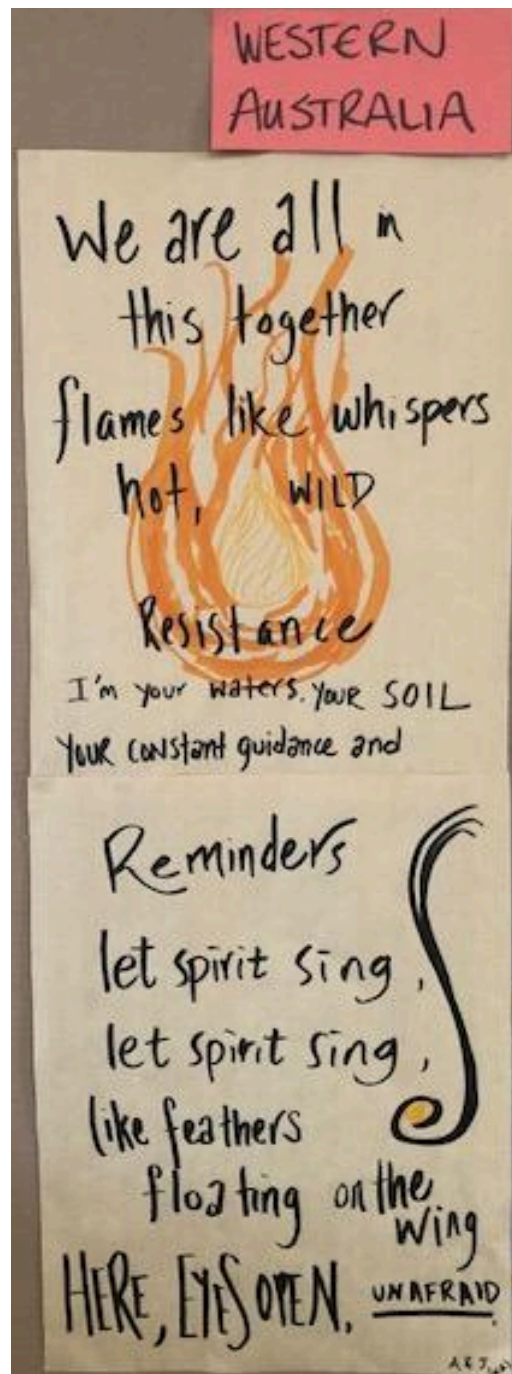 WESTERN
AUSTRALIA
We are all in
this together
flames like whispers
hot, WILD
Resistance
I'm your waters. YOUR SOIL
YOUR CONStant guidance and
Reminders
let spirit sing,
let spirit sing,
like feathers
floating on the
wing
HERE, EYES OPEN. UNAFRAID.